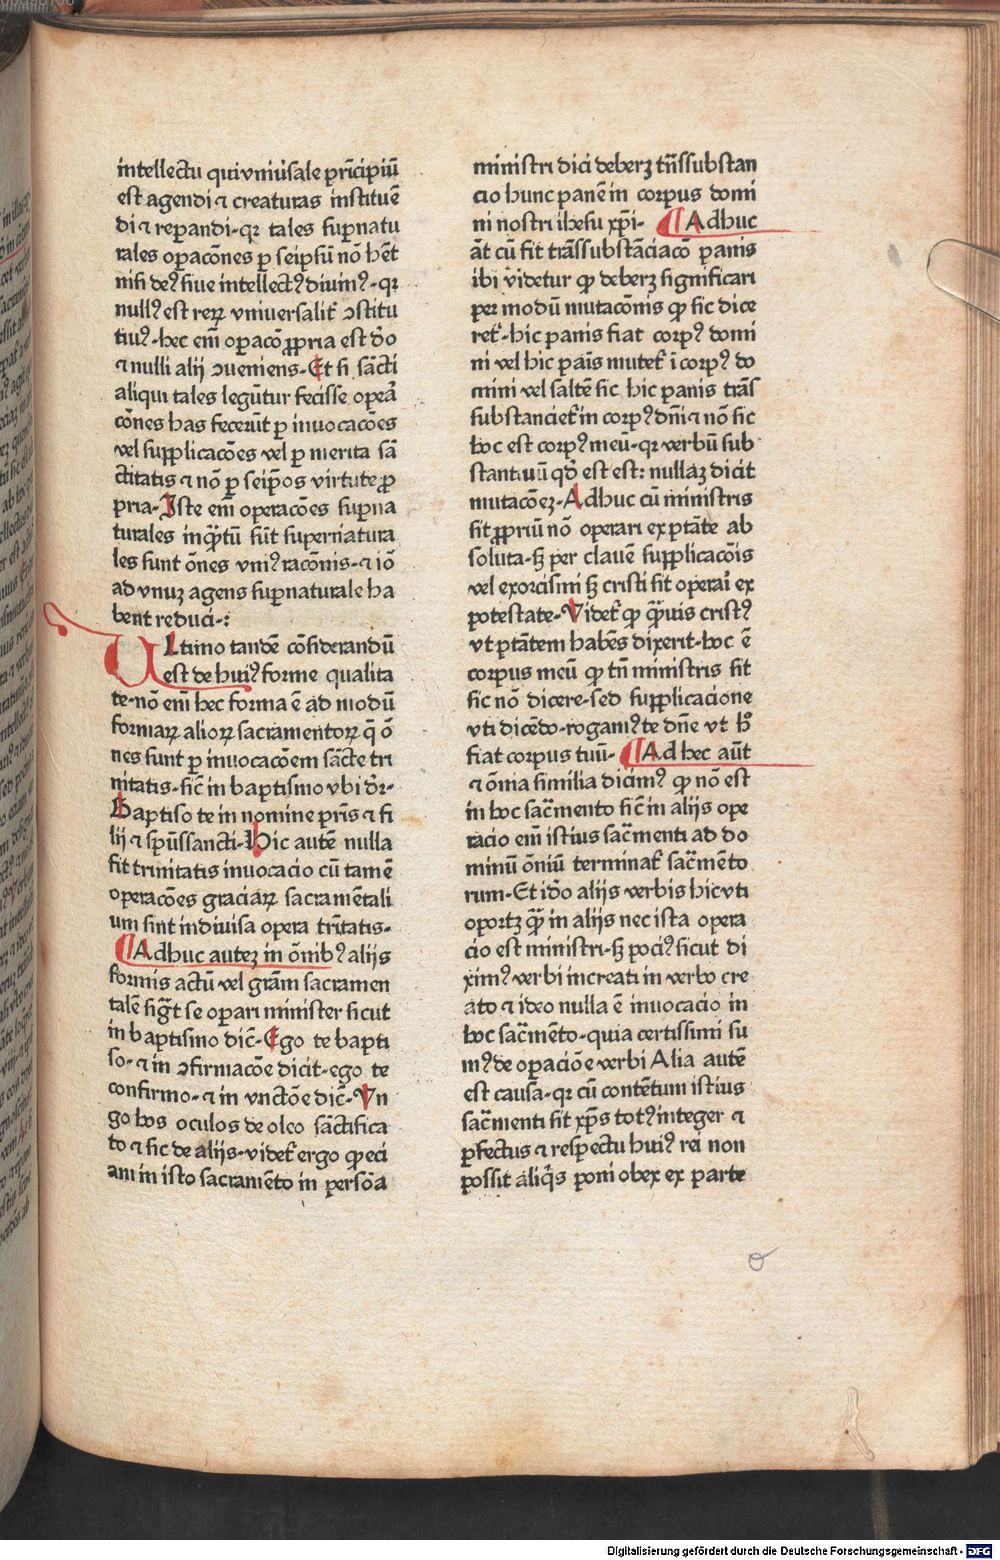 intellectu qui vniűsale prīcipiū
est agendi ⁊ creaturas instituē
di ⁊ reꝑandi·qꝛ tales suꝑnatu
rales oꝑacōnes ꝑ seipsū nō hēt
nisi deꝰ siue intellectꝰ diuinꝰ·qꝛ
nullꝰ est reꝝ vniuersalit̄ ↄstitu
tiuꝰ·hec em̄ oꝑacō ꝓpria est dō
⁊ nulli alij ↄueniens·Et si sācti
aliqui tales legūtur fecisse oꝑeā
cōnes has fecerūt ꝑ inuocacōes
vel supplicacōes vel ꝑ merita sā
ctitatis ⁊ nō ꝑ seipōs virtute ꝓ
pria·Iste em̄ operacōes suꝑna
turales inq̄ꝫtū sūt superńatura
les sunt ōnes vniꝰ racōnis·⁊ iō
ad vnuꝫ agens suꝑnaturale ha
bent reduci·:
VLtimo tandē cōsiderandū
est de huiꝰ forme qualita
te·nō em̄ hec forma ē ad modū
formaꝝ alioꝝ sacramentoꝝ q̄ ō
nes sunt ꝑ inuocacōem sācte tri
nitatis·sic̄ in baptismo vbi dr̄·
Baptiso te in nomine pr̄is ⁊ fi
lij ⁊ sp̄ussancti·Hic autē nulla
fit trinitatis inuocacio cū tamē
operacōes graciaꝝ sacramētali
um sint indiuisa opera tr̄itatis·
¶Adhuc auteꝫ in ōnibꝰ alijs
formis actū vel gr̄am sacramen
talē sigt̄ se oꝑari minister sicut
in baptismo dic̄·Ego te bapti
so·⁊ in ↄfirmacōe dicit·ego te
confirmo·⁊ in vnctōe dic̄·Vn
go hos oculos de oleo sāctifica
to ⁊ sic de alijs·videt̄ ergo ꝙ eci
am in isto sacramēto in persōa
ministri dici deberꝫ tn̄ssubstan
cio hunc panē in corpus domi
ni nostri ihesu xp̄i· ¶Adhuc
āt cū fit trāssubstāciacō panis
ibi videtur ꝙ deberꝫ significari
per modū mutacōnis ꝙ sic dice
ret̄·hic panis fiat corpꝰ domi
ni vel hic pāis mutet̄ ī corpꝰ do
mini vel saltē sic hic panis trās
substanciet̄ in corpꝰ dn̄i ⁊ nō sic
hoc est corpꝰ meū·qꝛ verbū sub
stantiuū qd̄ est est: nullaꝫ dicit
mutacōeꝫ·Adhuc cū ministris
sit ꝓpriū nō operari ex ptāte ab
soluta·sꝫ per clauē supplicacōis
vel exorcismi sꝫ cristi sit operāi ex
potestate·Videt̄ ꝙ q̄ꝫuis cristꝰ
vt ptātem habēs dixerit·hoc ē
corpus meū ꝙ tn̄ ministris sit
sic nō dicere·sed supplicacione
vti dicēdo·rogamꝰ te dn̄e vt h̄
fiat corpus tuū· ¶Ad hec aūt
⁊ ōnia similia dicimꝰ ꝙ nō est
in hoc sac̄mento sic̄ in alijs ope
racio em̄ istius sac̄menti ad do
minū ōniū terminat̄ sac̄mēto
rum·Et idō alijs verbis hic vti
oportꝫ q̄ꝫ in alijs nec ista opera
cio est ministri·sꝫ pociꝰ sicut di
ximꝰ verbi increati in verbo cre
ato ⁊ ideo nulla ē inuocacio in
hoc sac̄mēto·quia certissimi su
mꝰ de oꝑaciōe verbi Alia autē
est causa·qꝛ cū contētum istius
sac̄menti sit xp̄s totꝰ integer ⁊
ꝑfectus ⁊ respectu huiꝰ rei non
possit aliq̄s poni obex ex parte
Digitalisierung gefördert durch die Deutsche Forschungsgemeinschaft - DFG